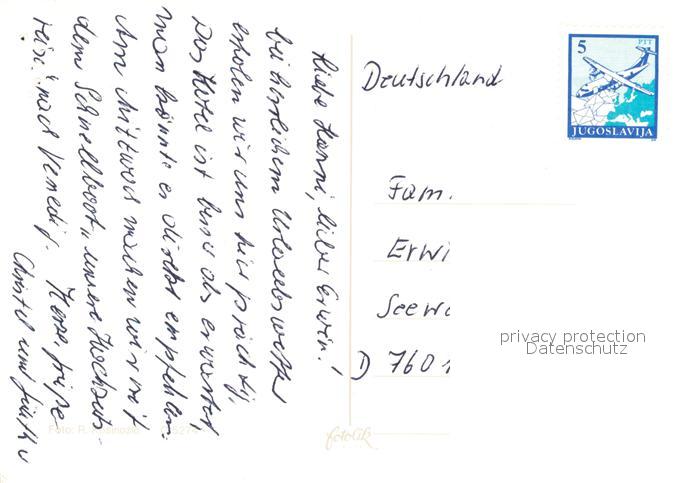 Liebe Hanni, lieber Erwin!
bei herrlichem Urlaubswetter
erholen wir uns hier prächtig.
Das Hotel ist besser als erwartet
man könnte es direkt empfehlen.
Am Mittwoch machen wir mit
dem Schnellboot "unsere Hochzeits-
reise" nach Venedig. Herzl. Grüße
Christel und
Deutschland
Fam.
Erwi
Seew
D 7601
PTT
5
JUGOSLAVIJA
privacy protection
Datenschutz
Foto: R.
fotolik